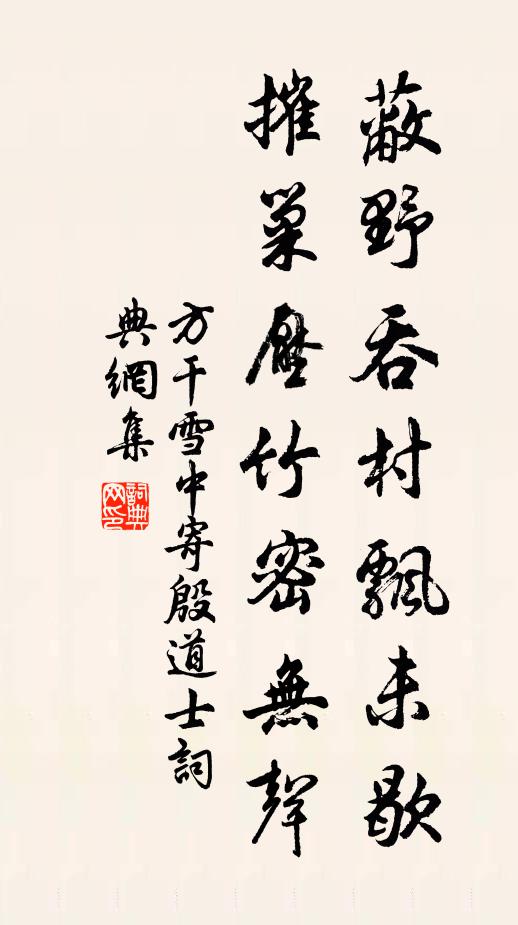 蔽野吞村飄未歇
摧巢壓竹密無聲
方干雪中寄殷道士詞
典網集
詞典
网印